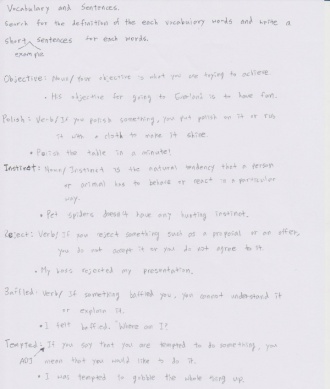 Vocabulary and Sentences.
Search for the definition of the each vocabulary words and write a
short sentences for each words.
example
Objective: Noun/Your objective is what you are trying to achieve.
• His objective for going to is to have fun.
Polish: Verb/If you polish something, you put polish on it or rub
it with a cloth to make it shine.
• Polish the table in a minute!
Instinct: Noun/Instinct is the natural tendency that a person
or animal has to behave or react in a particular
way.
• Pet spiders doesn't have any hunting instinct.
Reject: Verb/If you reject something such as a proposal or an offer,
you do not accept it or you do not agree to it.
• My boss rejected my presentation.
Baffled: Verb/If something baffled you, you cannot understand it
or explain it.
• I felt baffled. "Where am I?
Tempted: If you say that you are tempted to do something, you
ADJ mean that you would like to do it.
• I was tempted to gobble the whole thing up.